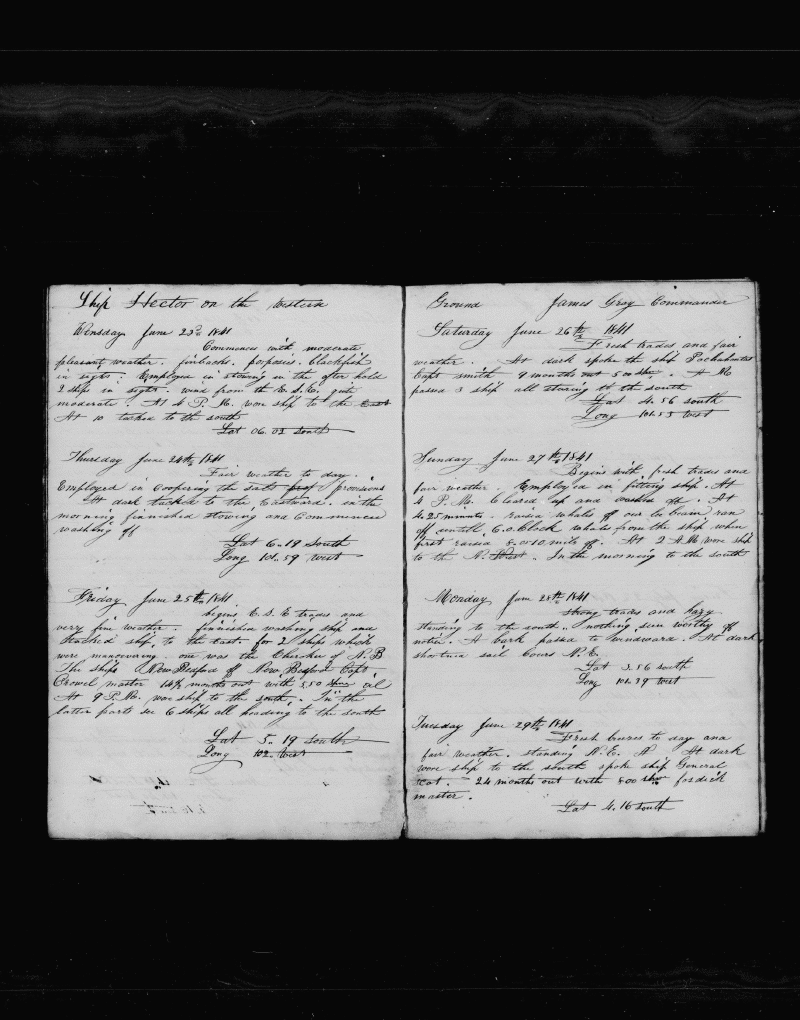 Ship Hector on the Western
Wensday June 23d 1841
Commences with moderate
pleasant weather. finbacks. porpoises. blackfish
in sight. Employed in stowing in the after hold
2 ships in sight. wind from the E.S.E. quite
moderate. At 4 P.M. wore ship to the East
At 10 tacked to the south
Lat 06.03 south
Thursday June 24th 1841
Fair weather to day.
Employed in Coopering the salt provisions
At dark tacked to the Eastward. in the
morning finnished stowing and Commenced
washing off
Lat 6.19 South
Long 101.59 west
Friday June 25th 1841
begins E.S.E trades and
very fine weather. finnished washing ship and
tacked ship to the East. for 2 ships which
were manouvering one was the Cherokee of N.B
The ships New Bedford of New Bedford Capt
Crowel master 14½ months out with 550 oil
At 9 P.M. wore ship to the south. In the
latter parts see 6 ships all heading to the south
Lat 5.19 south
Long 102. West
Ground James Gray Commander
Saturday June 26th 1841
Fresh trades and fair
weather. At dark spoke the ship Pochahontas
Capt smith 9 months out 500 A M
passed 3 ship all stering to the south
Lat 4.56 south
Long 101.53 west
Sunday June 27th 1841
Begins with fresh trades and
fair weather Employed in fitting ship. At
4 P.M. Cleared up and washed off. At
4.25 minutes. raised whales off our Beam ran
off untill 6.o.Clock whales from the ship when
first raised 8 or 10 mile off. At 2 A.M wore ship
to the N. In the morning to the south
Monday June 28th 1841
strong trades and hazy
standing to the south. nothing seen worthy of
notice. A bark passed to windward. At dark
shortned sail Cours N.E.
Lat 3.56 south
Long 101.39 west
Tuesday June 29th 1841
Fresh breezes to day and
fair weather. standing N.E. At dark
wore ship to the south spoke ship General
24 months out with 800 fosdick
master.
Lat 4.16 south